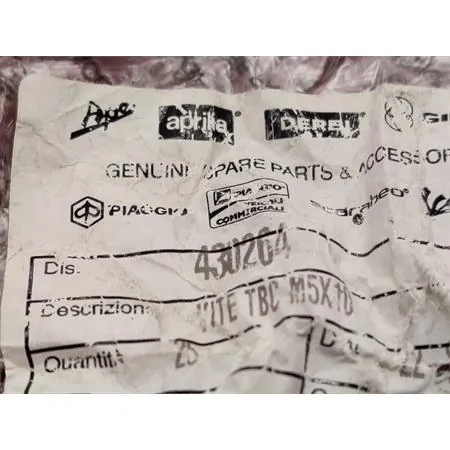 Ape aprilia DERBI GI
GENUINE SPARE PARTS & ACCESSOR
PIAGGIO PIAGGIO VEICOLI COMMERCIALI scarabeo
Dis. 430264
Descrizion VITE TBC M5X10
Quantità 25